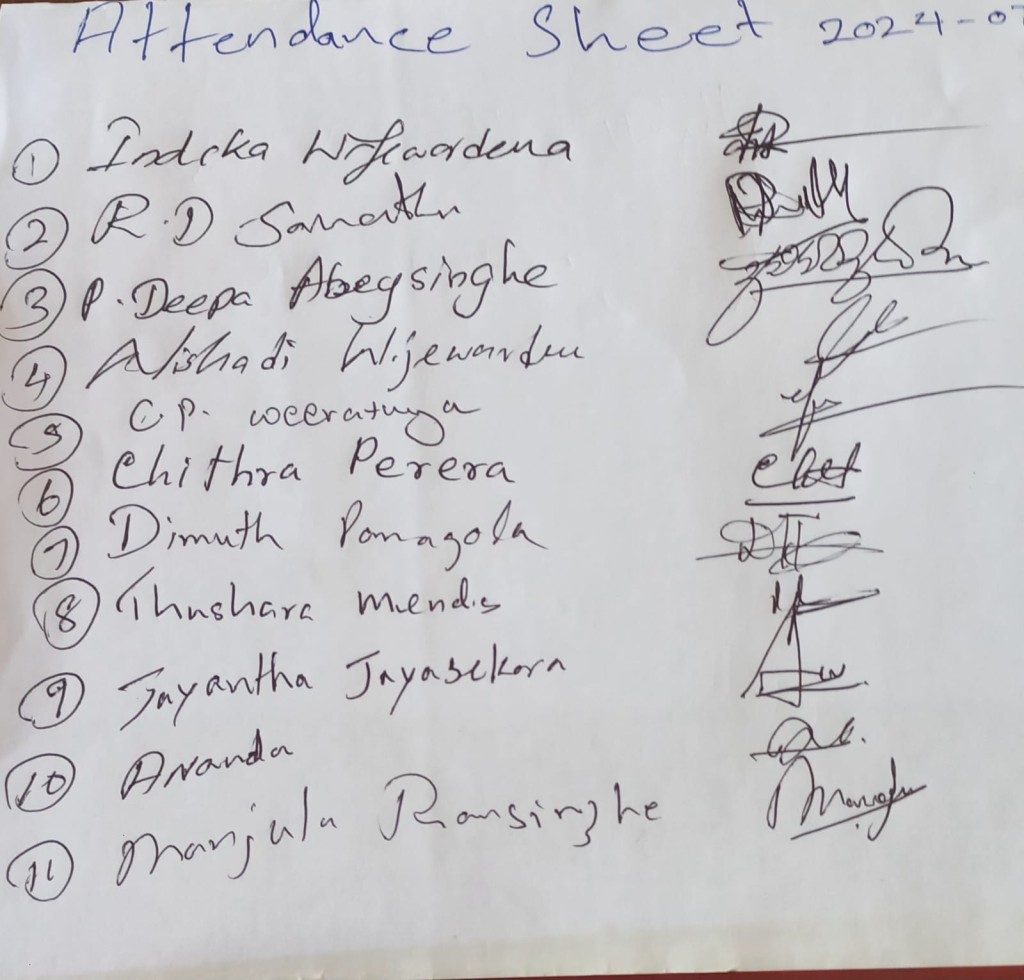 Attendance Sheet 2024-07
1 Indika Wijewardena
2 R.D Samantha
3 P. Deepa Abeysinghe
4 Nishadi Wijewardena
5 C.P. weeratunga
6 Chithra Perera
7 Dimuth Pomagola
8 Thushara mendis
9 Jayantha Jayasekara
10 Ananda
11 Manjula Ransinghe